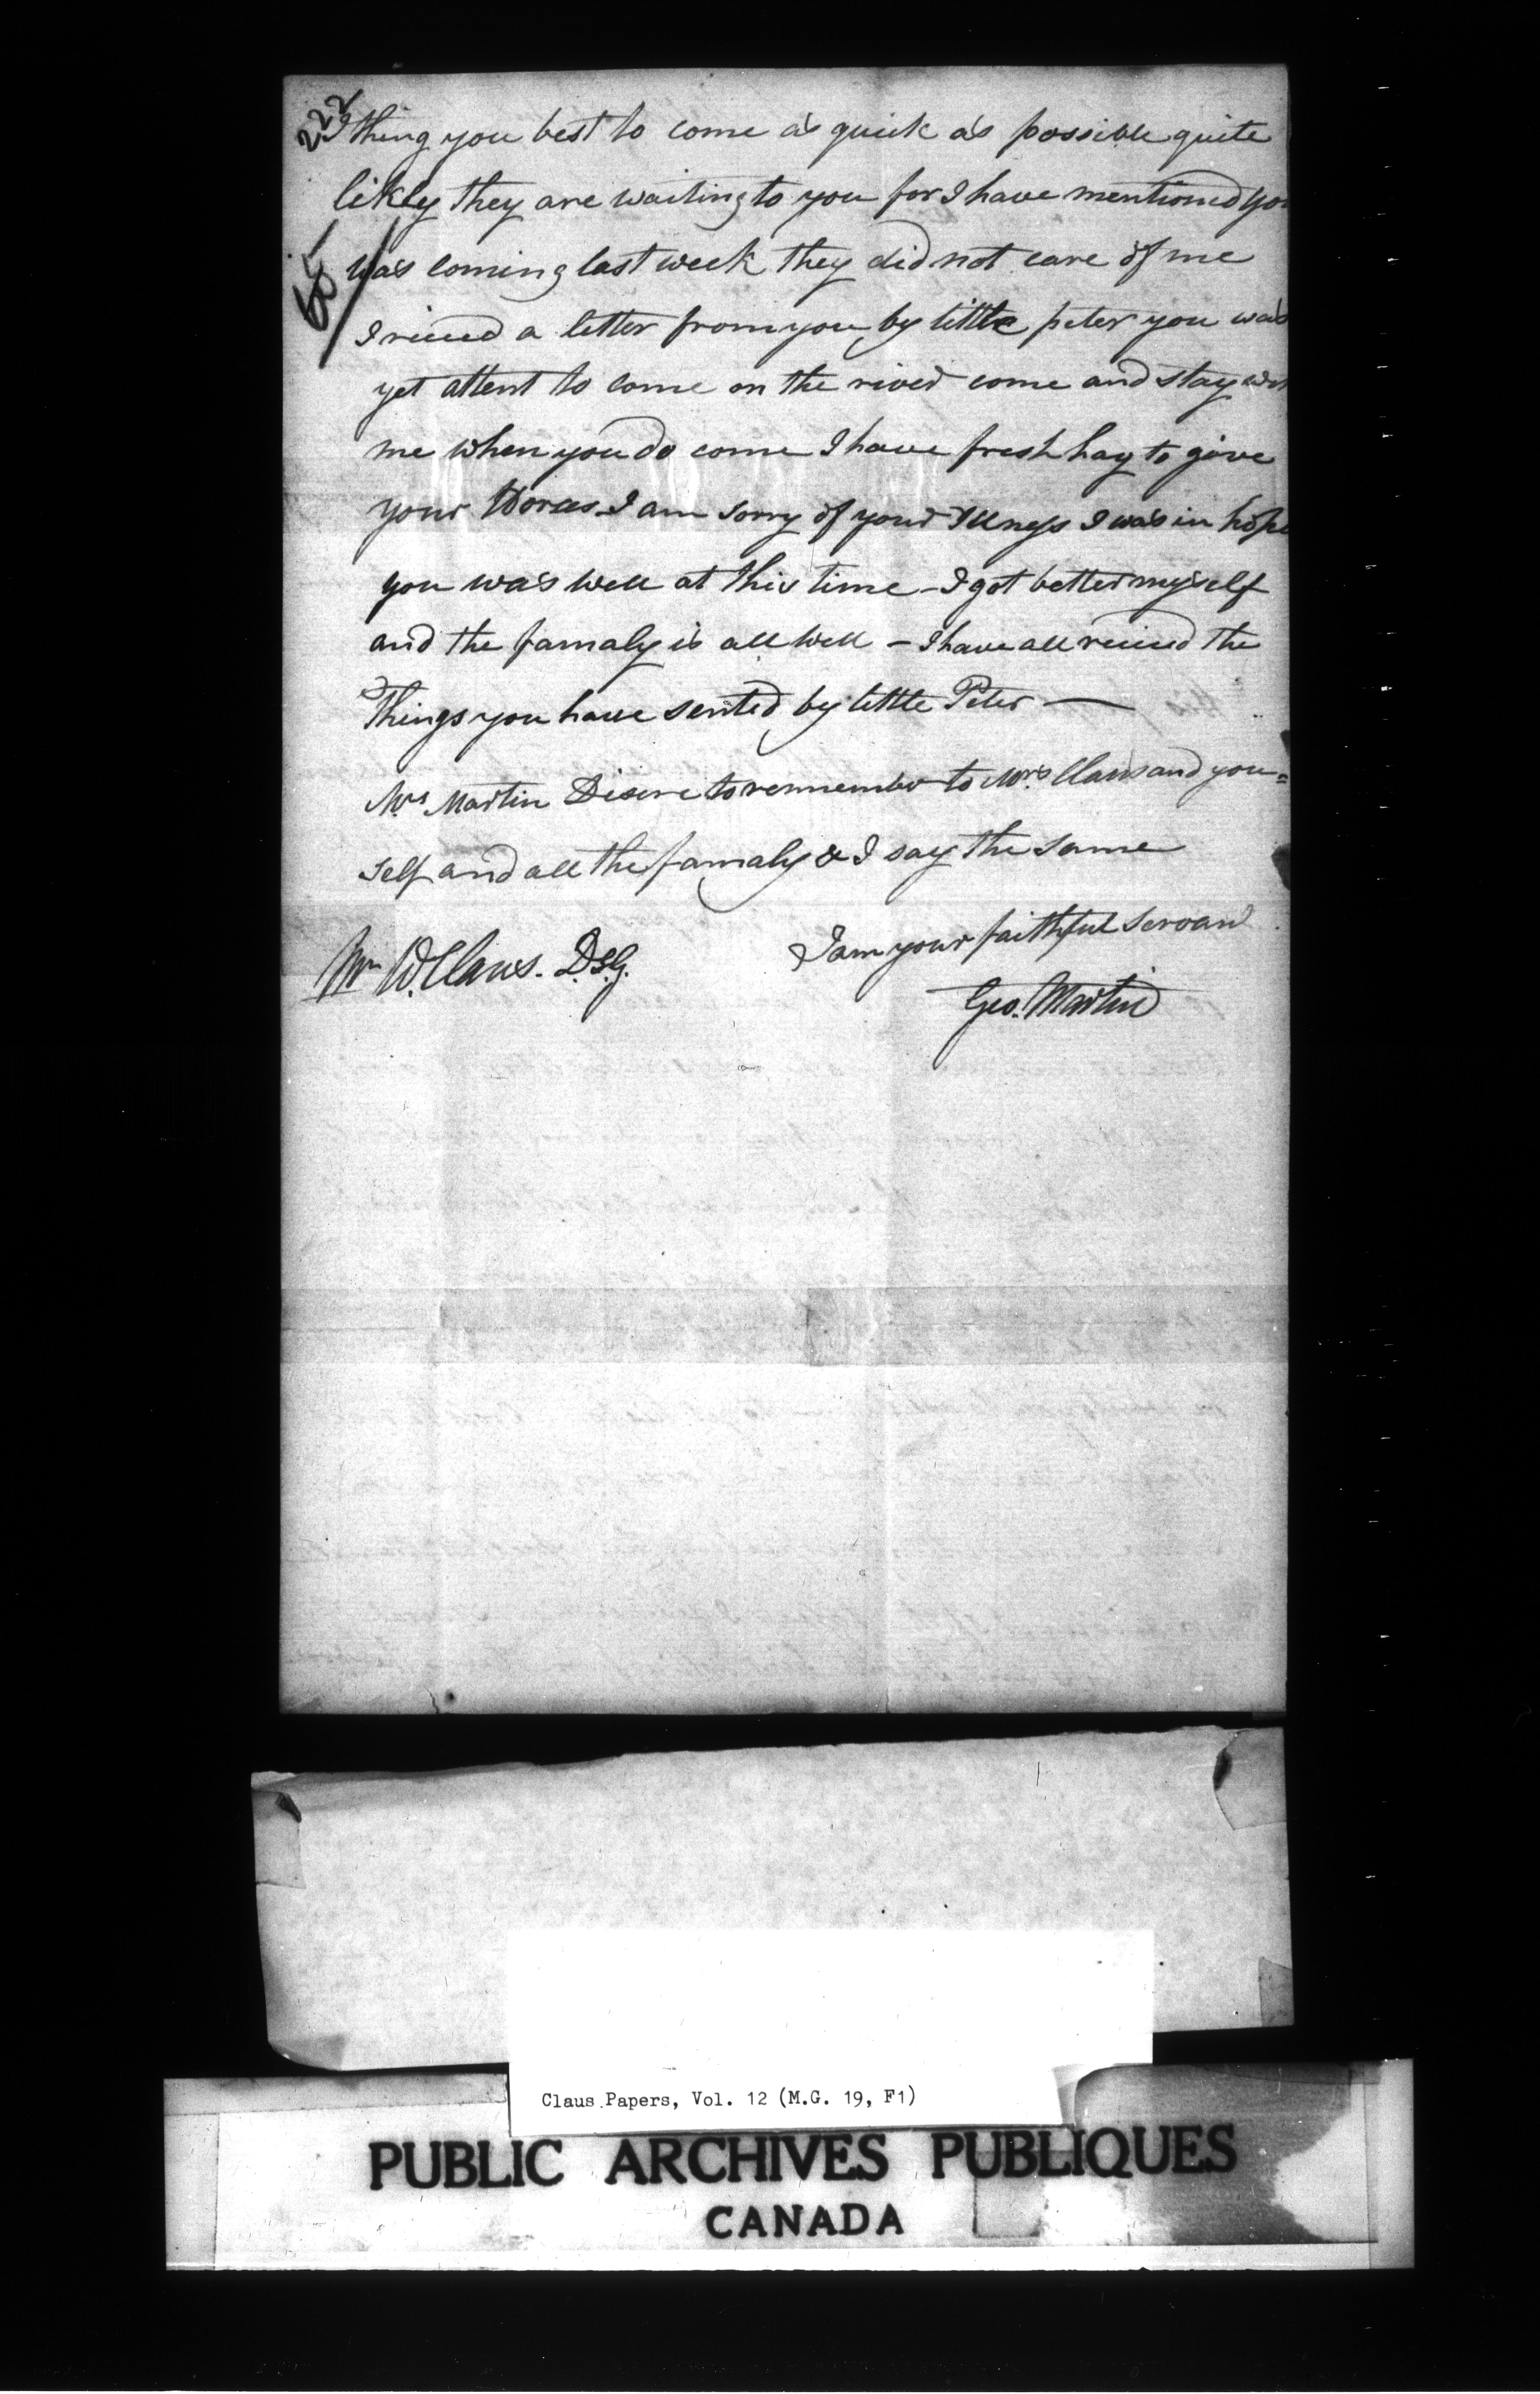 222
I thing you best to come as quick as possible quite
likly they are waiting to you for I have mentioned you
65
was coming last week they did not care of me
I recied a letter from you by little peter you was
yet attent to come on the river come and stay with
me when you do come I have fresh hay to give
your Horces I am sorry of your Illness I was in hope
you was well at this time - I got better myself
and the famaly is all well - I have all recied the
Things you have sented by little Peter —
Mrs Martin Disire to remember to Mrs. Claus and you=
self and all the famaly & I say the same
I am your faithful servant
Mr W. Claus. D.S.G.
Geo. Martin
Claus Papers, Vol. 12 (M.G. 19, F1)
PUBLIC ARCHIVES PUBLIQUES
CANADA